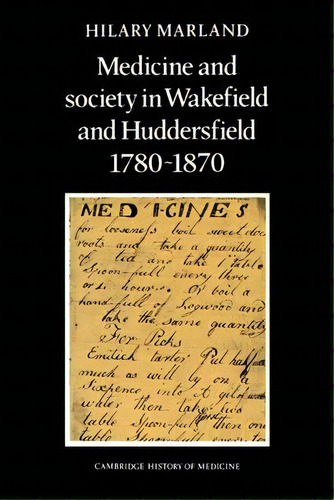 HILARY MARLAND
Medicine and
society in Wakefield
and Huddersfield
1780-1870
MEDICINES
for looseness boil sweet doc
roots and take a quantity
of tea and take 1 table
Spoon-full every three
or 4 hours. Or boil a
hand-full of Logwood and
take the same quantity
For Picks
Emitick tarter Put half
much as will ly on a
Sixpence into A gil of
water then take two
table Spoon-full then one
table Spoon-full every
CAMBRIDGE HISTORY OF MEDICINE